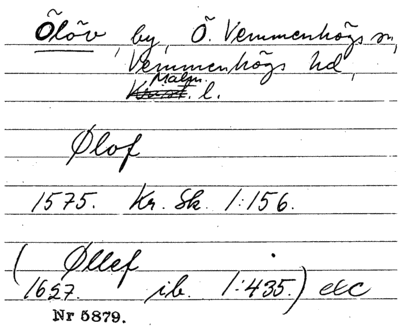 Ölöv, by, Ö. Vemmenhögs sn,
Vemmenhögs hd,
Malm.
Krist. l.
Ølof
1575. Kr. Sk. 1:156.
( Øllef
1627. ib. 1:435.) etc
Nr 5879.